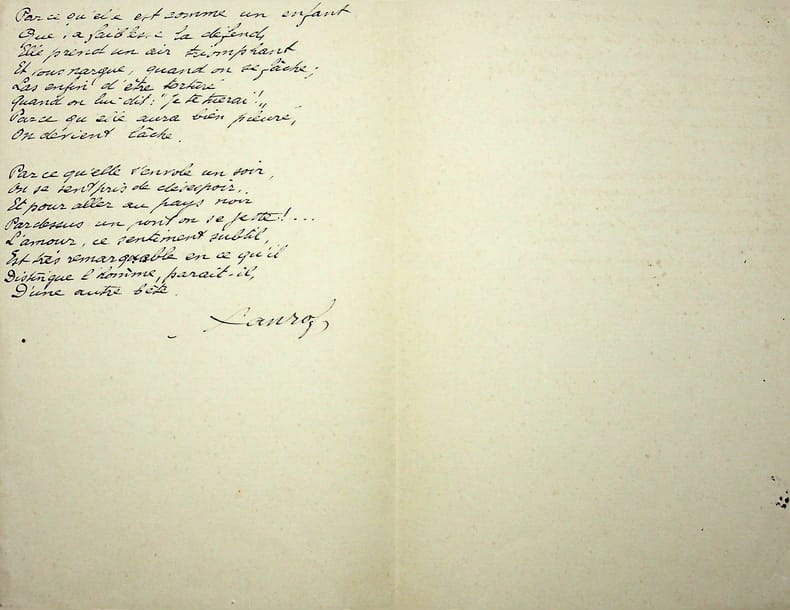 Parce qu'elle est comme un enfant
Que sa faiblesse la défend,
Elle prend un air triomphant
Et vous nargue, quand on se fâche;
Las enfin d'être torturé
Quand on lui dit: "Je te tuerai!"
Parce qu'elle aura bien pleuré,
On devient lâche.
Parce qu'elle s'envole un soir,
On se sent pris de désespoir..
Et pour aller au pays noir
Pardessus un pont on se jette!...
L'amour, ce sentiment subtil,
Est très remarquable en ce qu'il
Distingue l'homme, parait-il,
D'une autre bête.
Xanrof